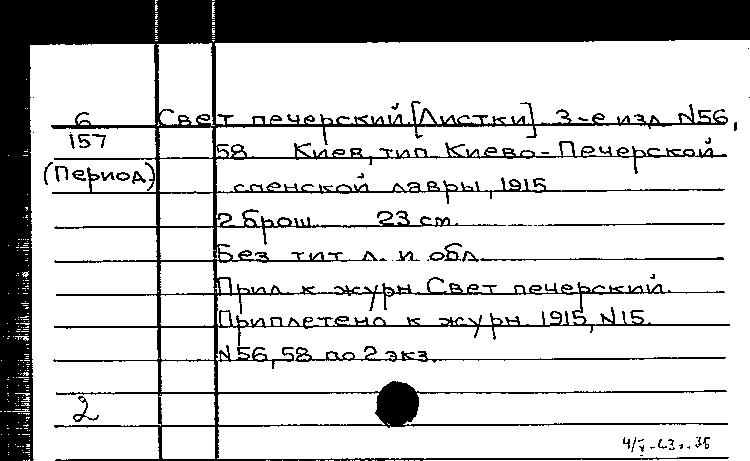 6 Свет печерский. [Листки]. 3-е изд. N56,
157 58. Киев, тип. Киево-Печерской
(Период.) спенской лавры, 1915
2 брош. 23 см.
Без тит. л. и обл.
Прил. к журн. Свет печерский.
Приплетено к журн. 1915, N15.
N56, 58 по 2 экз.
2